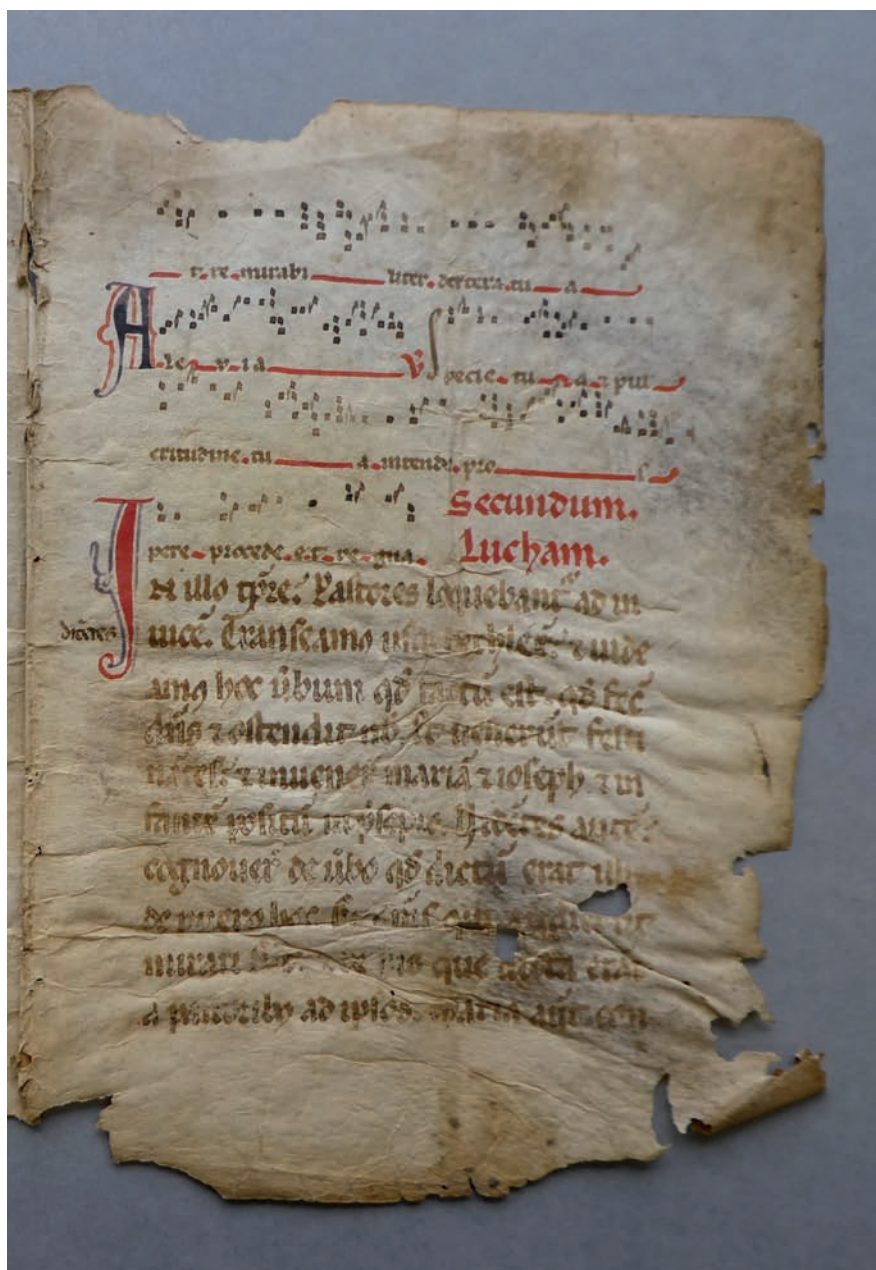 t. te mirabi liter. dextera. tu a
Ale v ia ℣ Specie. tu a ⁊ pul
critudine. tu a. intende. pro s
Secundum.
pere. procede. et. re gna.
Lucham.
In illo tp̄re: Pastores loquebant᷑ ad in
dicētes
uicē. Transeamꝰ usq; bethleē: ⁊ uide
amꝰ hoc ūbum qd̄ factū est. qd̄ fec̄
dn̄s ⁊ ostendit nob̄. Et uenerūt festi
nātes: ⁊ inuener̄ mariā ⁊ ioseph. ⁊ in
fantē positū in p̄sepio. Uidētes autē:
cognouer̄ de ūbo qd̄ dictū erat illis
de puero hoc. Et om̄s qui
mirati sunt que dicta erāt
a pastoribꝰ ad ipsos. Maria aūt. con